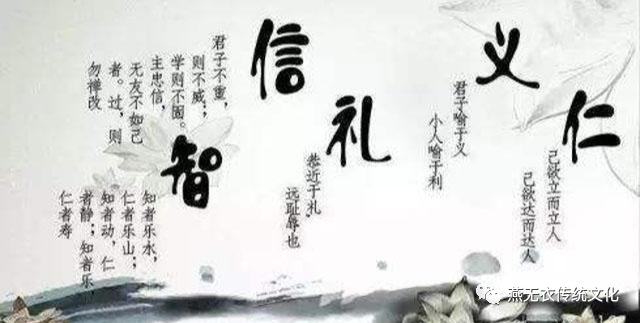 仁
己欲立而立人
己欲达而达人
义
君子喻于义
小人喻于利
礼
恭近于礼，
远耻辱也
信
君子不重，
则不威；
学则不固。
主忠信，
无友不如己
者。过，则
勿禅改
智
知者乐水，
仁者乐山；
知者动，仁
者静；知者乐，
仁者寿
燕无衣传统文化